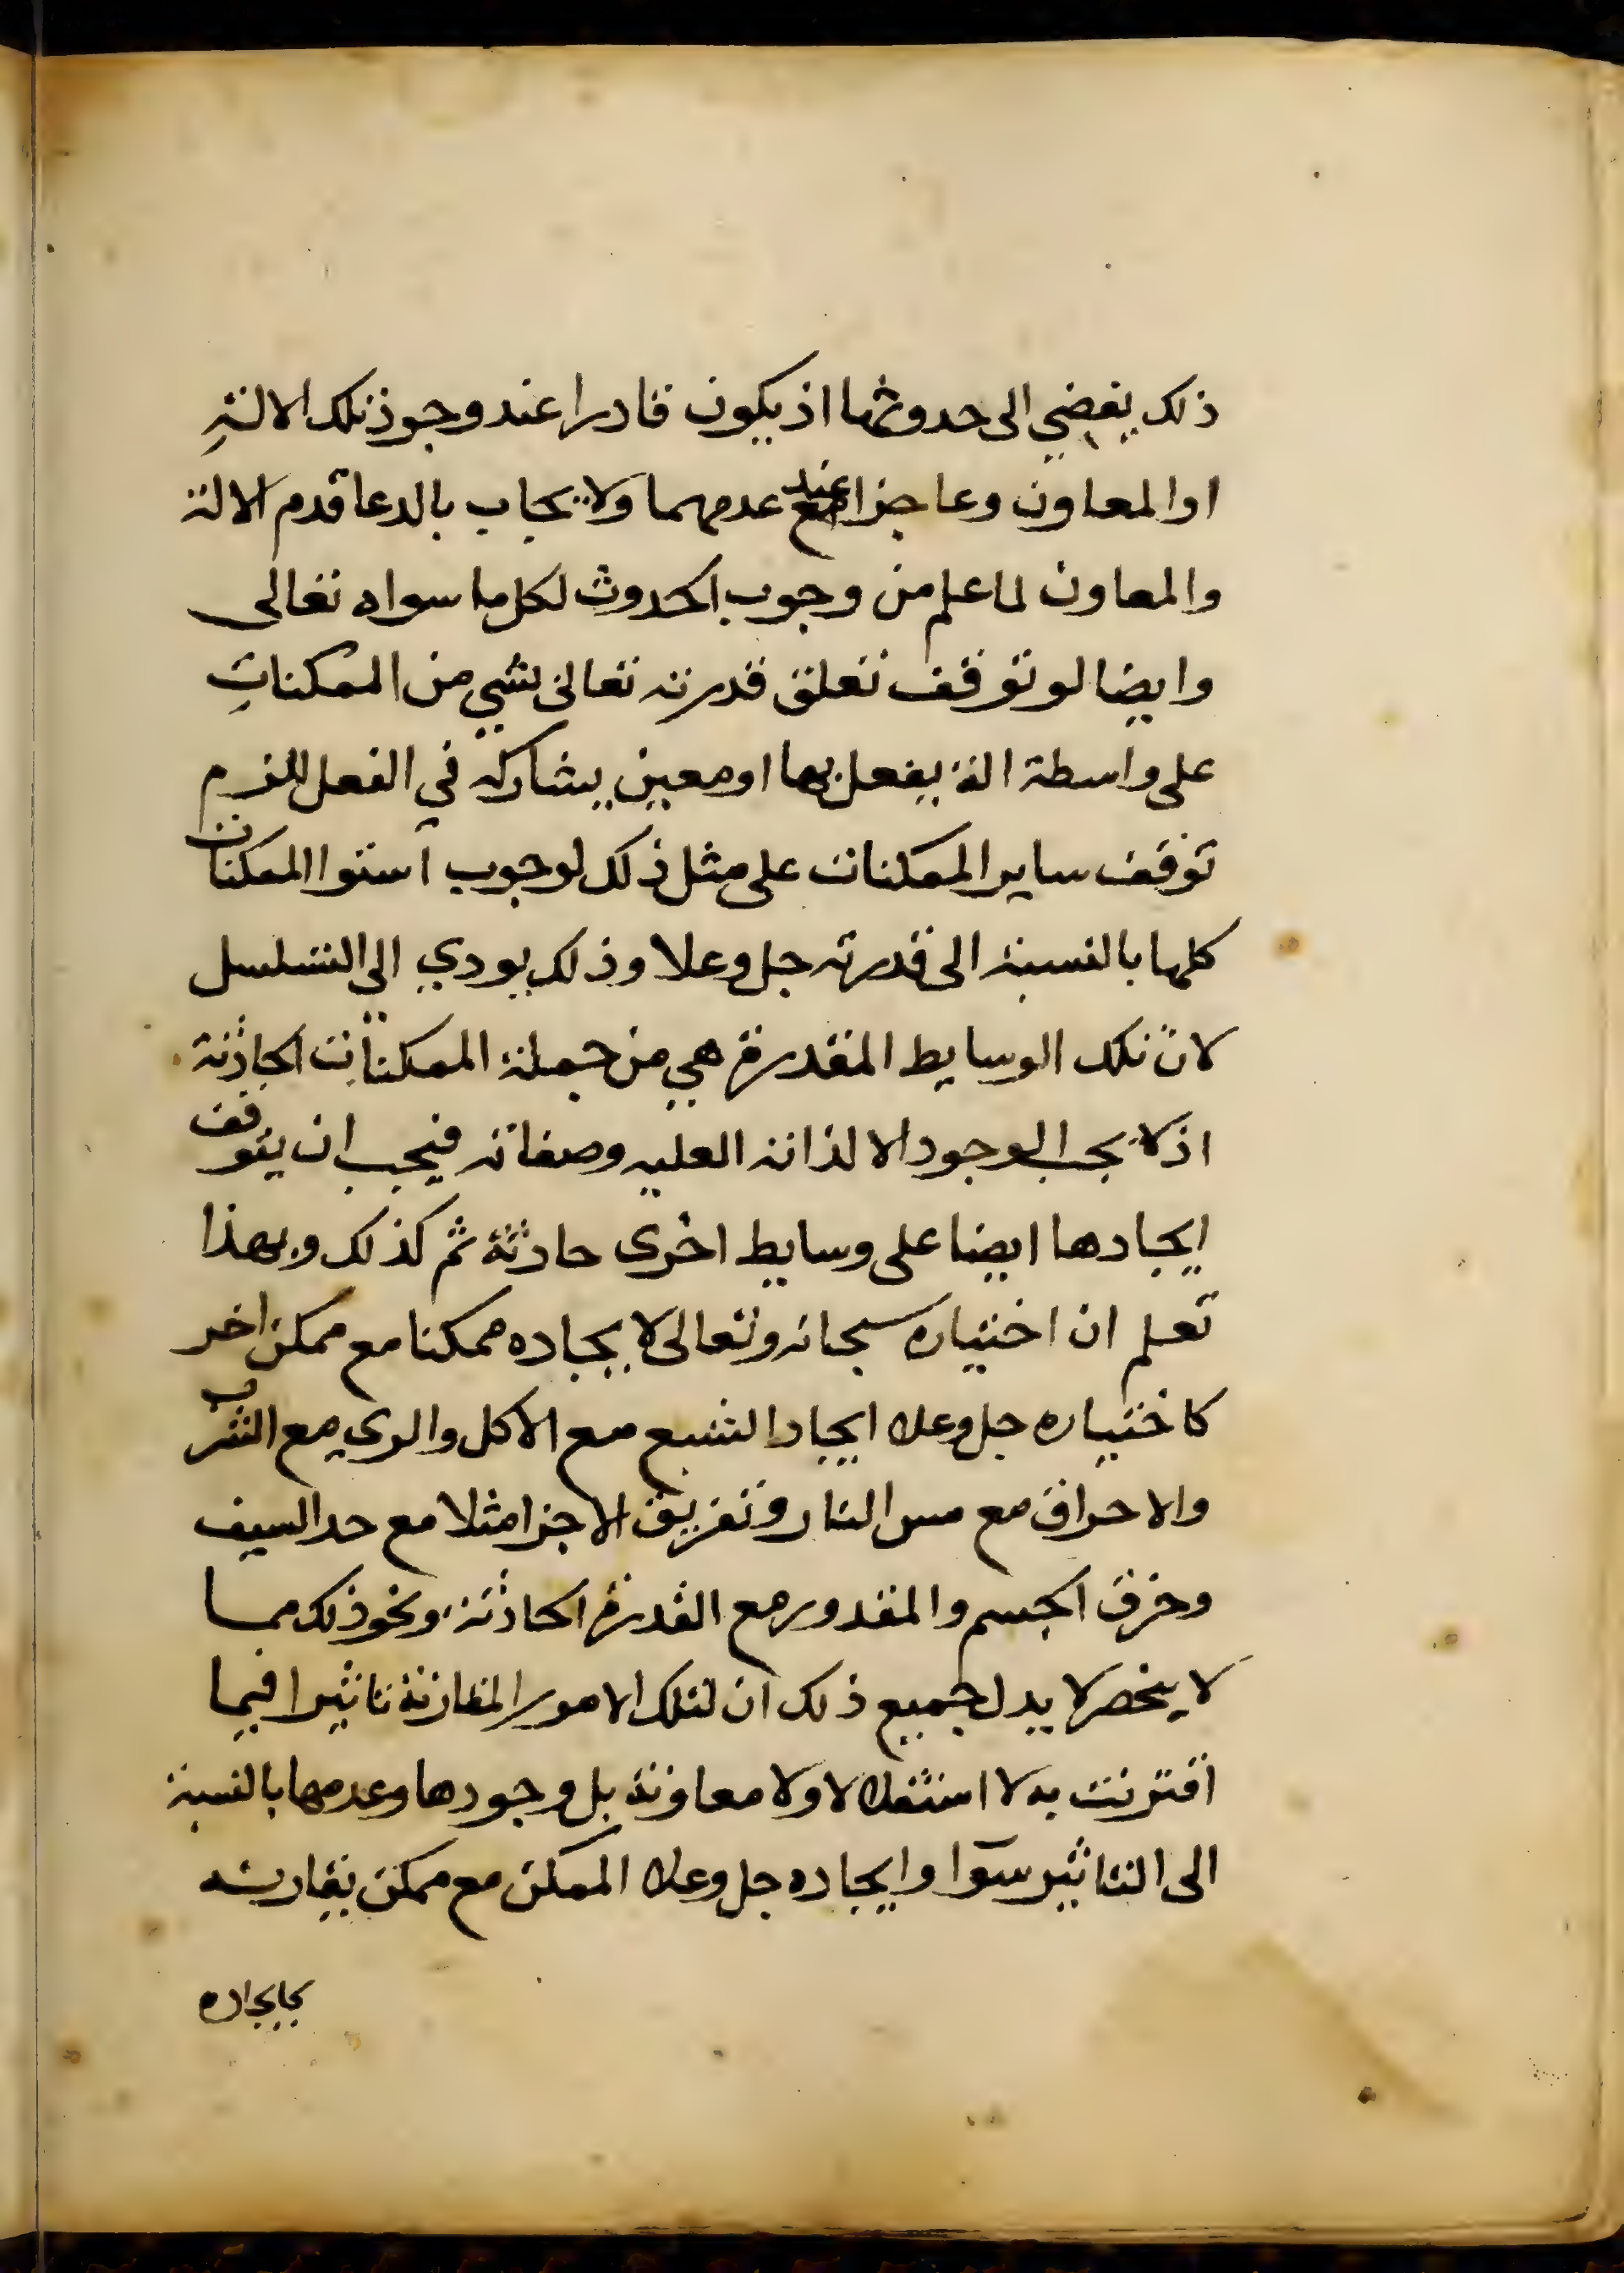 ذلك يفضي الى حدوثها اذ يكون قادرا عند وجود تلك الالة
او المعاون وعاجزا عند عدمهما ولا يجاب بالدعا قدم الالة
والمعاون لما علم من وجوب الحدوث لكل ما سواه تعالى
وايضا لو توقف تعلق قدرته تعالى بشي من الممكنات
على واسطة الة يفعل بها او معين يشاركه في الفعل للزم
توقف ساير الممكنات على مثل ذلك لوجوب استوا الممكنات
كلها بالنسبة الى قدرته جل وعلا وذلك يودي الى التسلسل
لان تلك الوسايط المقدرة هي من جملة الممكنات الحادثة
اذ لا يجب الوجود الا لذاته العليه وصفاته فيجب ان يتوقف
ايجادها ايضا على وسايط اخرى حادثة ثم كذلك وبهذا
تعلم ان اختياره سبحانه وتعالى لايجاده ممكنا مع ممكن اخر
كاختياره جل وعلا ايجاد الشبع مع الاكل والري مع الشرب
والاحراق مع مس النار وتفريق الاجزا مثلا مع حد السيف
وخرق الجسم والمقدور مع القدرة الحادثة ونحو ذلك مما
لا ينحصر لا يدل جميع ذلك ان لتلك الامور المقارنة تاثيرا فيما
اقترنت به لا استقلالا ولا معاونة بل وجودها وعدمها بالنسبة
الى التاثير سوا وايجاده جل وعلا الممكن مع ممكن يقارنه
بايجاده